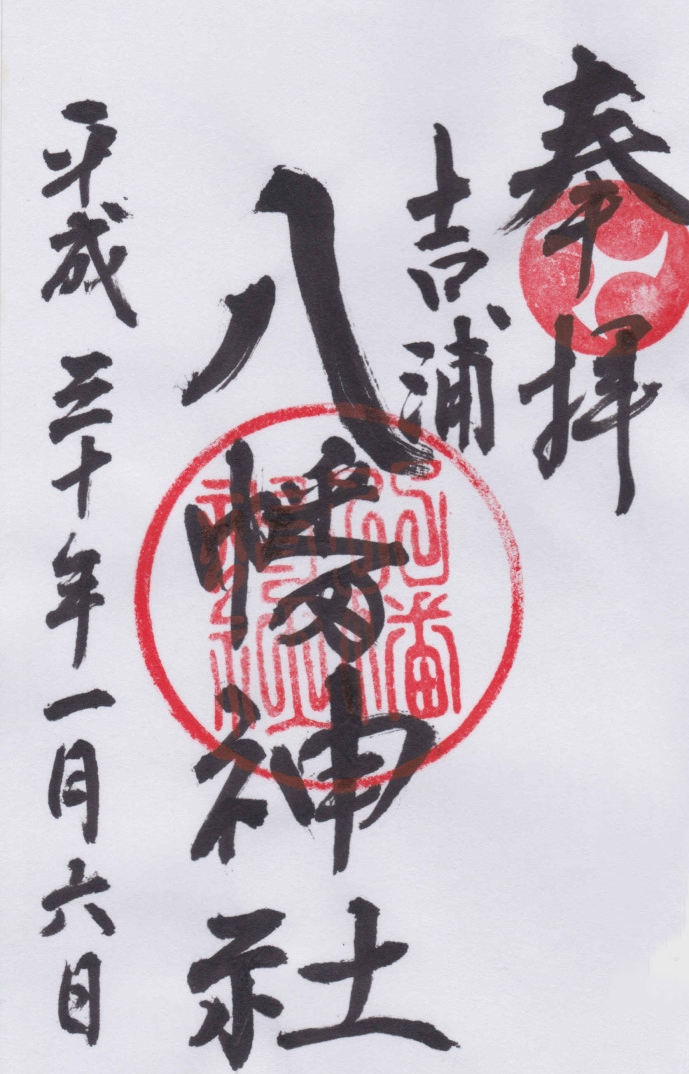 奉拝
吉浦
八幡神社
平成三十年一月六日